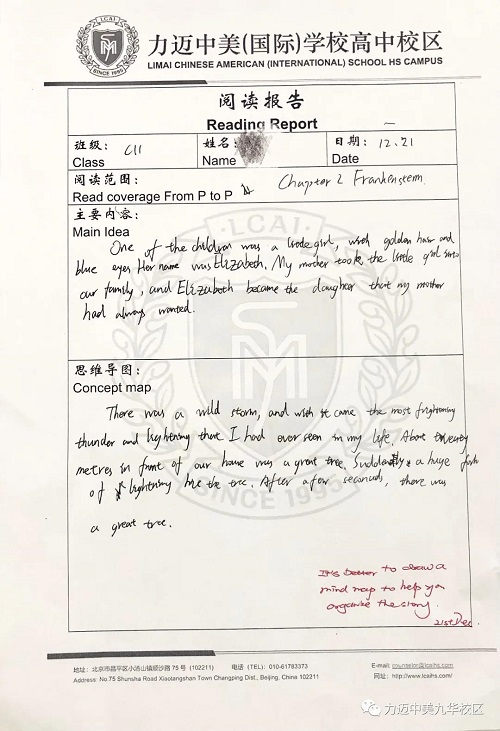 LCAI
SINCE 1993
力迈中美(国际)学校高中校区
LIMAI CHINESE AMERICAN (INTERNATIONAL) SCHOOL HS CAMPUS
阅读报告
Reading Report
班级: C11
Class
姓名:
Name
日期: 12.21
Date
阅读范围:
Read coverage From P to P Chapter 2 Frankenstein
主要内容:
Main Idea
One of the children was a little girl, with golden hair and
blue eyes. Her name was Elizabeth. My mother took the little girl into
our family, and Elizabeth became the daughter that my mother
had always wanted.
思维导图:
Concept map
There was a wild storm, and with it came the most frightening
thunder and lightning that I had ever seen in my life. About twenty
metres in front of our house was a great tree. Suddenly a huge fork
of lightning hit the tree. After a few seconds, there was
a great tree.
LCAI
SINCE 1993
It's better to draw a
mind map to help you
organize the story.
21st Dec.
地址: 北京市昌平区小汤山镇顺沙路 75 号 (102211) 电话 (TEL): 010-61783373
Address: No.75 Shunsha Road Xiaotangshan Town Changping Dist., Beijing, China 102211
E-mail: counselor@lcaihs.com
网址: http://www.lcaihs.com/
力迈中美九华校区